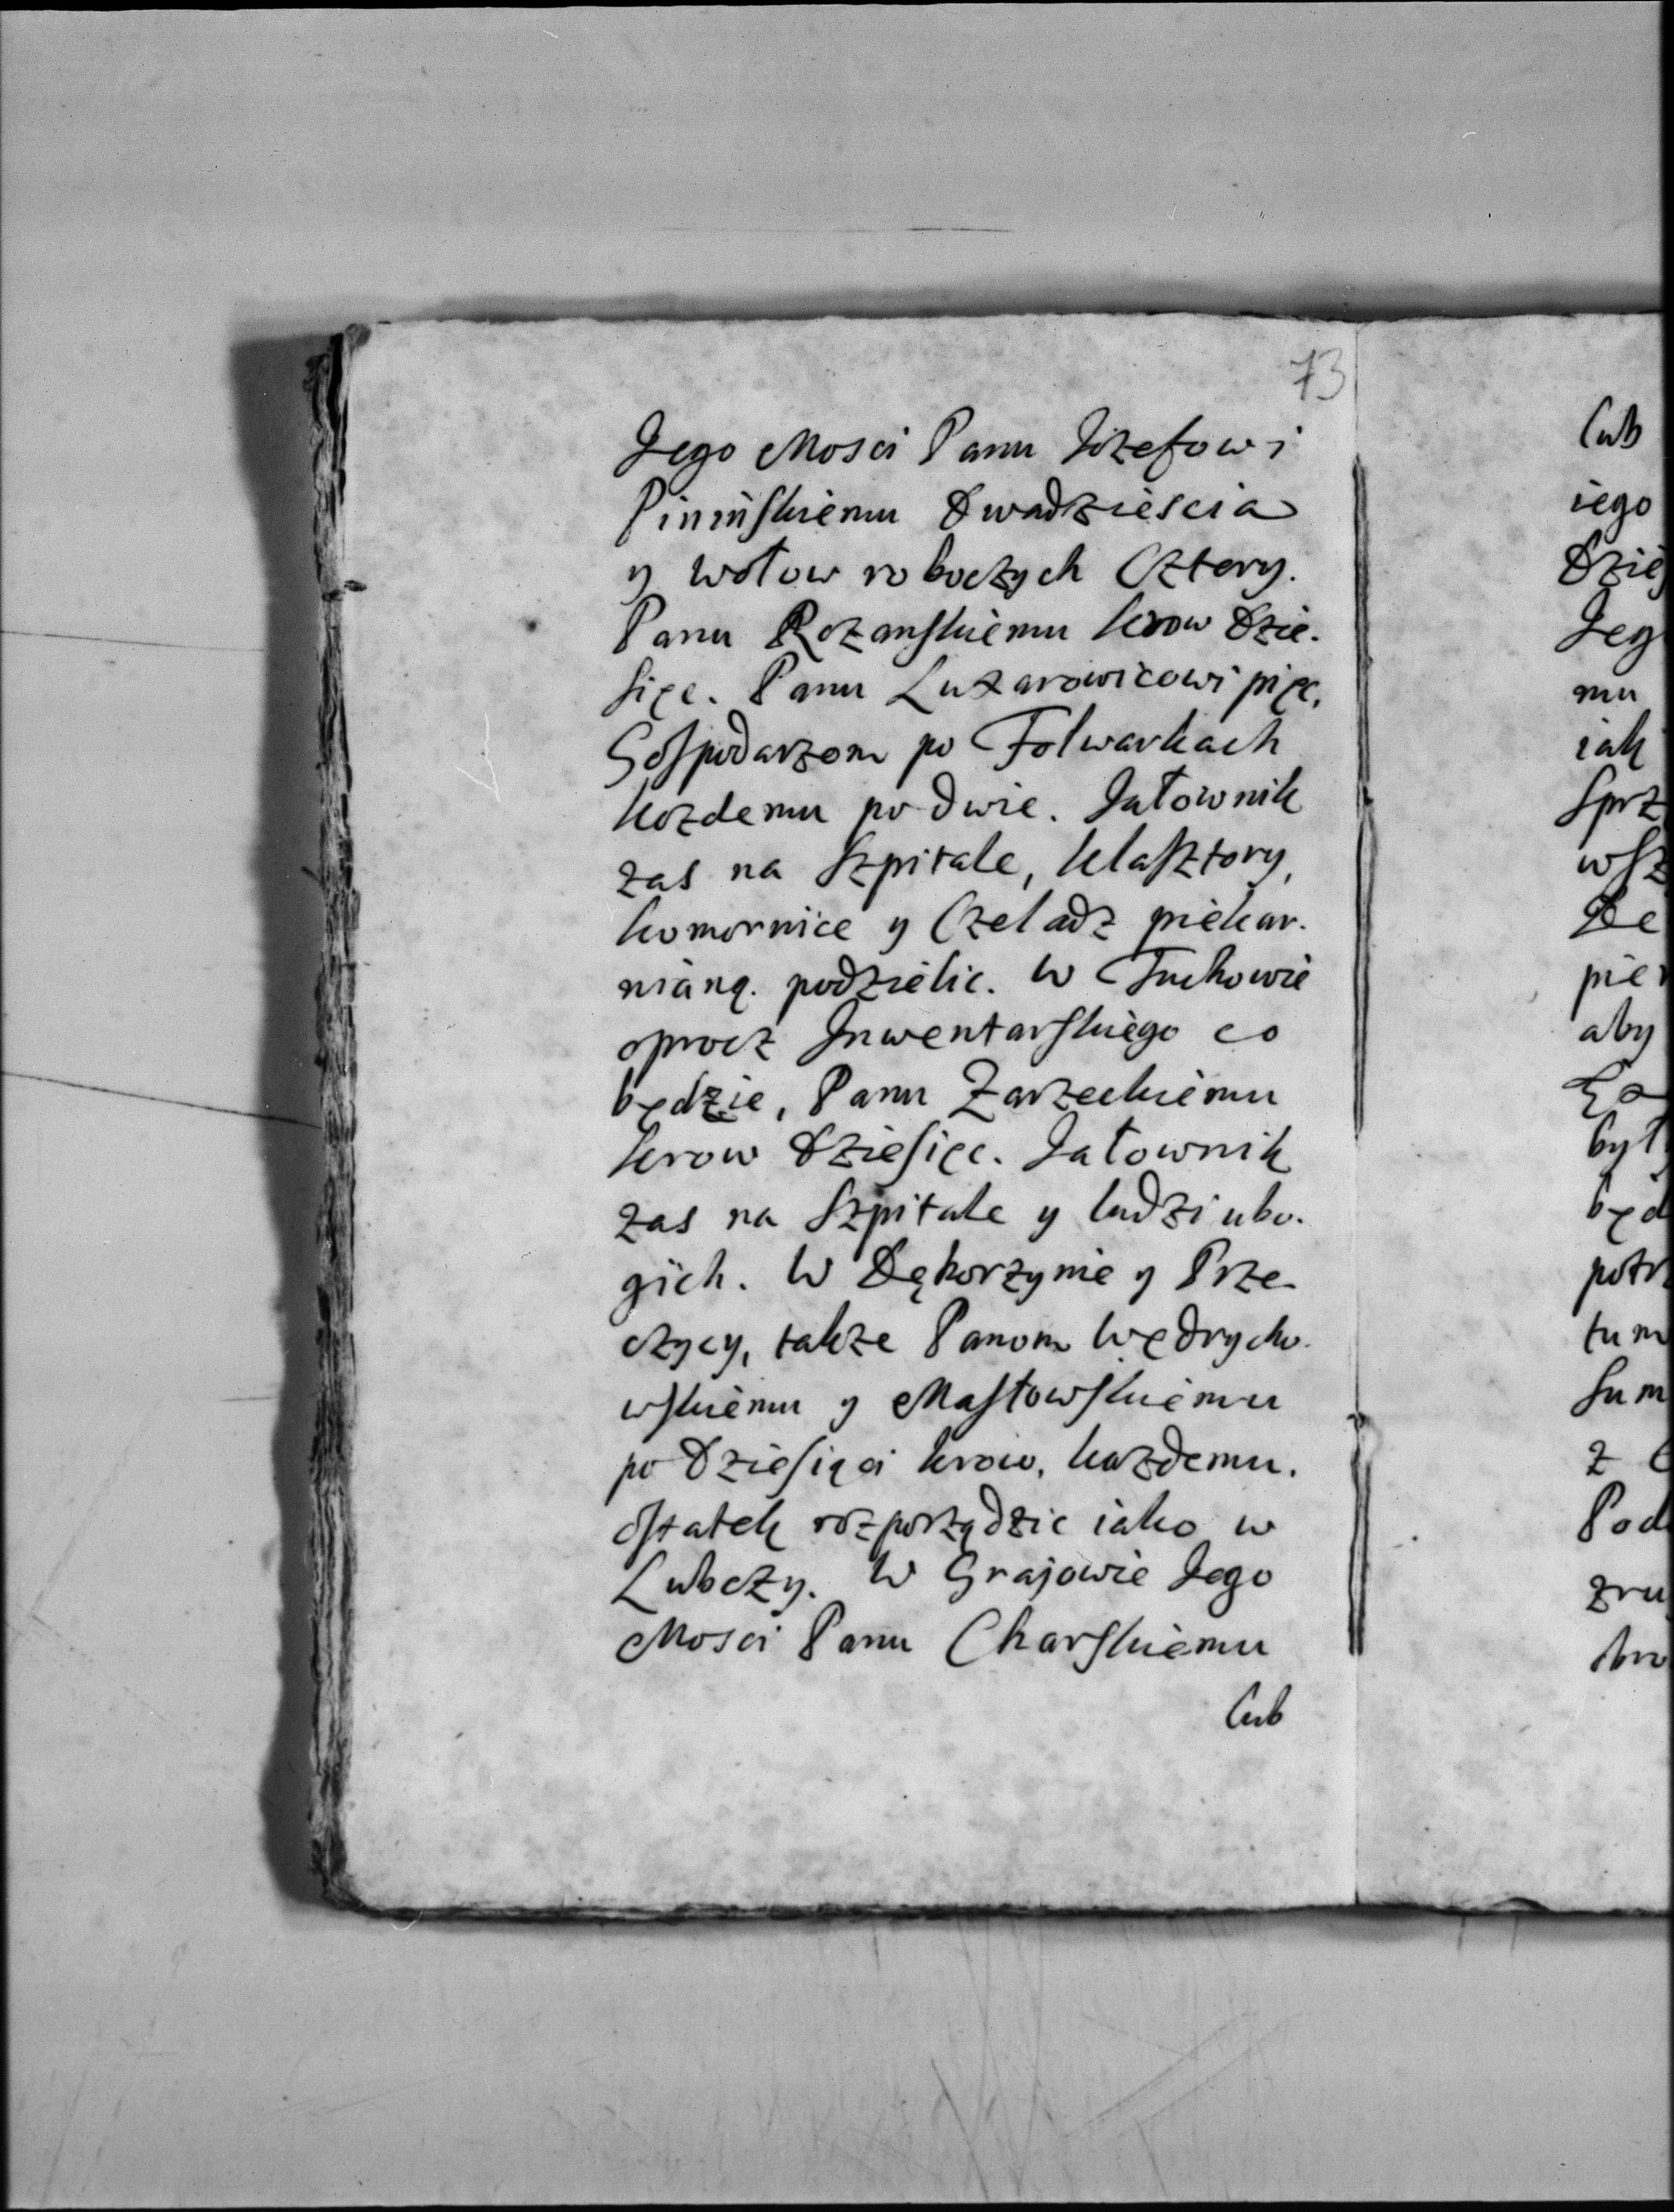 73
Jego Mosci Panu Jozefowi
Pininskiemu Dwadziescia
y wołow roboczych Cztery.
Panu Rozanskiemu krow Dzie-
sięc. Panu Lazarowicowi pięc,
Gospodarzom po Folwarkach
kozdemu po dwie. Jałownik
zas na Szpitale, klasztory,
komornice y Czeladz piekar-
nianą podzielic. W Tuchowie
oprocz Inwentarskiego co
będzie, Panu Zarzeckiemu
krow Dziesięc. Jałownik
zas na Szpitale y ludzi ubo-
gich. W Dękorzynie y Prze-
czycy, takze Panom Wędrycho-
wskiemu y Masłowskiemu
po Dziesiąci krow, kazdemu.
ostatek rozporządzic iako w
Lubczy. W Grajowie Jego
Mosci Panu Charskiemu
lub
lub
iego
Dzie
Jeg
mu
iak
Sprz
wsz
De
pie
aby
był
będ
potr
tum
Sum
z
Pod
zru